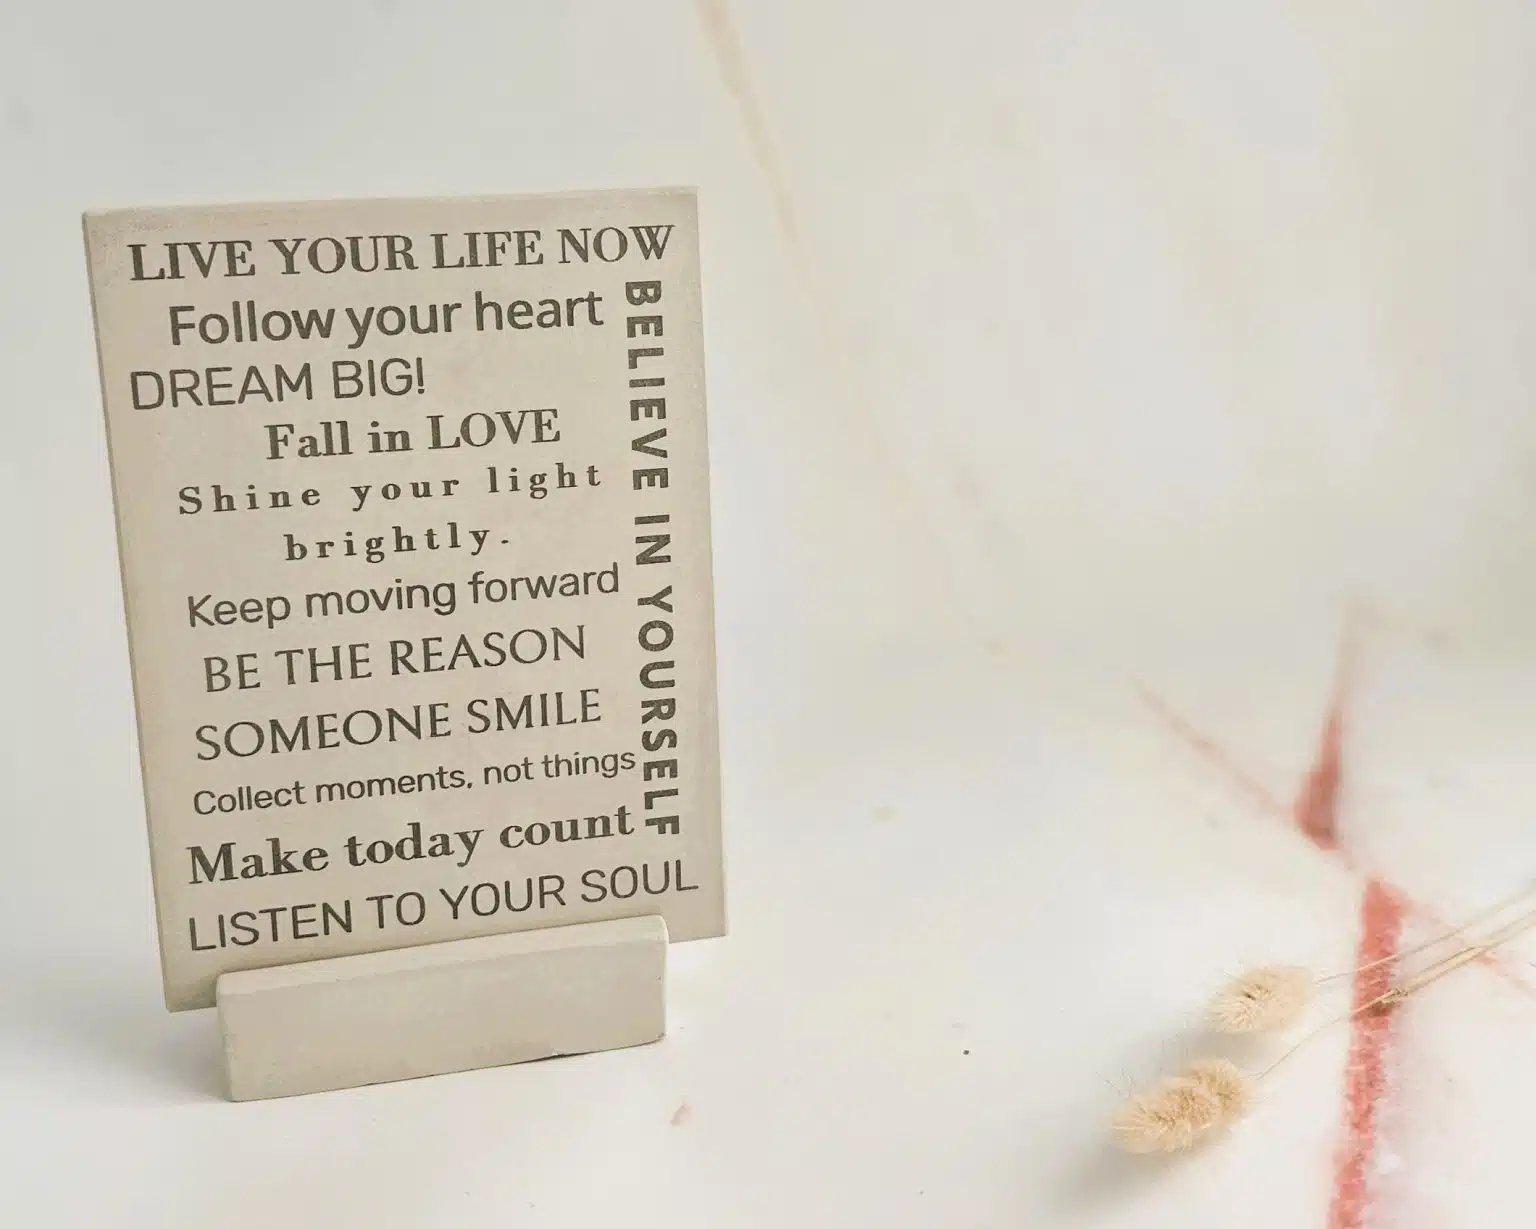 LIVE YOUR LIFE NOW
Follow your heart
DREAM BIG!
Fall in LOVE
Shine your light
brightly.
Keep moving forward
BE THE REASON
SOMEONE SMILE
Collect moments, not things
Make today count
LISTEN TO YOUR SOUL
BELIEVE IN YOURSELF